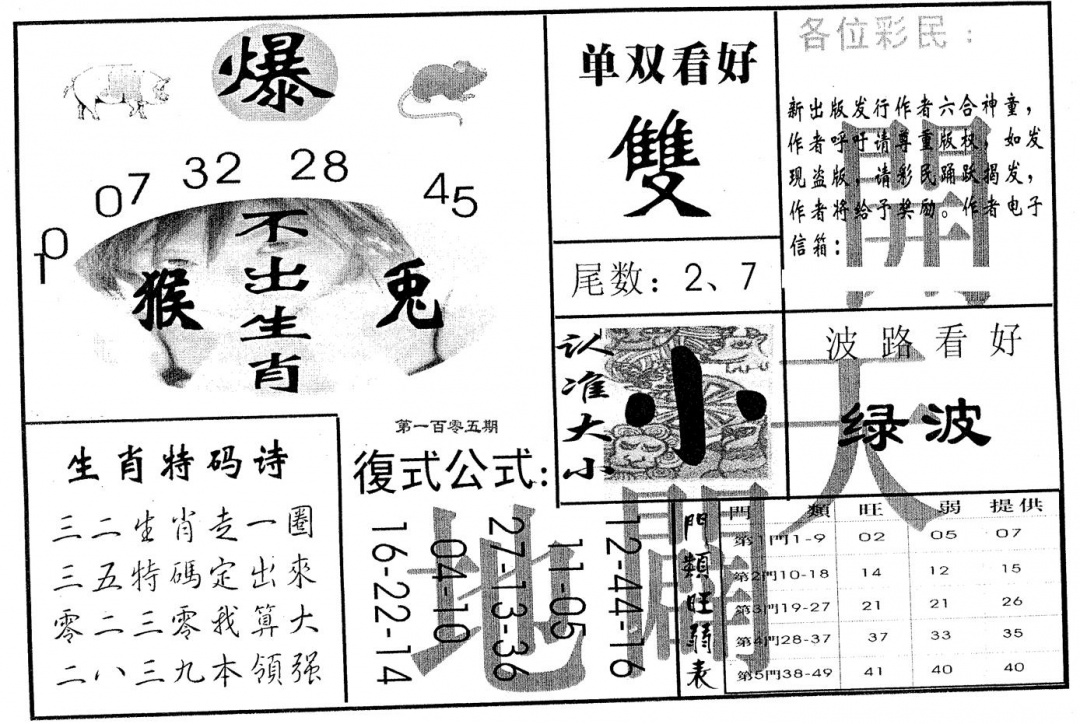 爆
10 07 32 28 45
不出生肖
猴
兔
单双看好
雙
尾数：2、7
认准大小
小
各位彩民：
新出版发行作者六合神童，
作者呼吁请尊重版权，如发
现盗版，请彩民踊跃揭发，
作者将给予奖励。作者电子
信箱：
波路看好
绿波
生肖特码诗
三二生肖走一圈
三五特碼定出來
零二三零我算大
二八三九本領强
第一百零五期
復式公式：
12-44-16
11-05
27-13-36
04-10
16-22-14
門類旺弱表
門類 旺 弱 提供
第1門1-9 02 05 07
第2門10-18 14 12 15
第3門19-27 21 21 26
第4門28-37 37 33 35
第5門38-49 41 40 40
開天
地